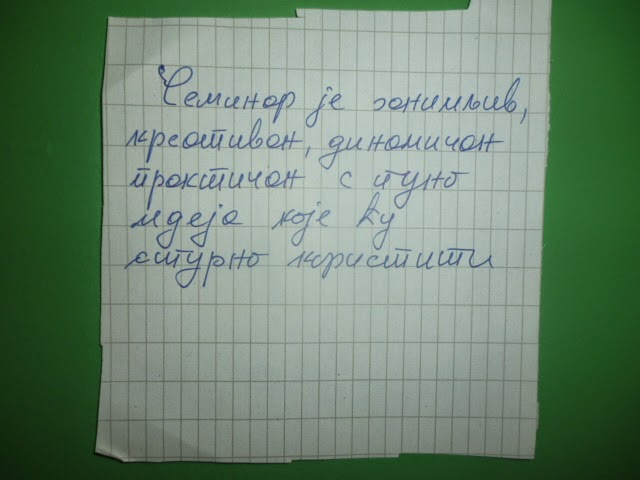 Семинар је занимљив,
креативан, динамичан
практичан с пуно
идеја које ћу
сигурно користити